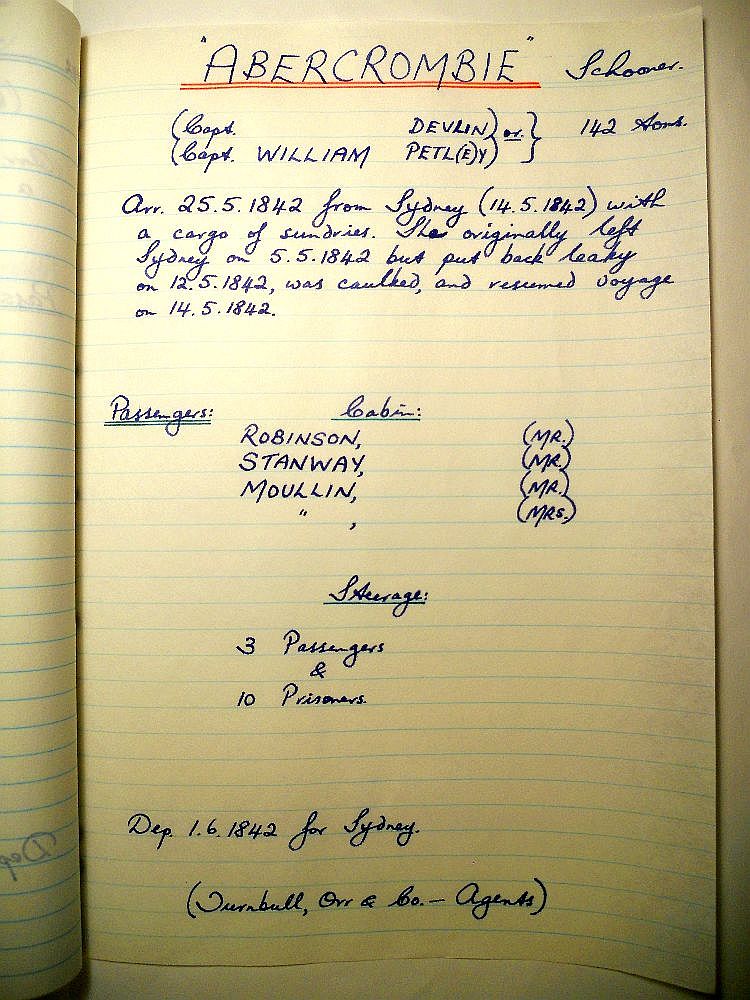 "ABERCROMBIE" Schooner.
(Capt. DEVLIN) or } 142 tons.
(Capt. WILLIAM PETL(E)Y)
Arr. 25.5.1842 from Sydney (14.5.1842) with
a cargo of sundries. She originally left
Sydney on 5.5.1842 but put back leaky
on 12.5.1842, was caulked, and resumed voyage
on 14.5.1842.
Passengers: Cabin:
ROBINSON, (MR.)
STANWAY, (MR.)
MOULLIN, (MR.)
" , (MRS.)
Steerage:
3 Passengers
&
10 Prisoners.
Dep. 1.6.1842 for Sydney.
(Turnbull, Orr & Co. — Agents)